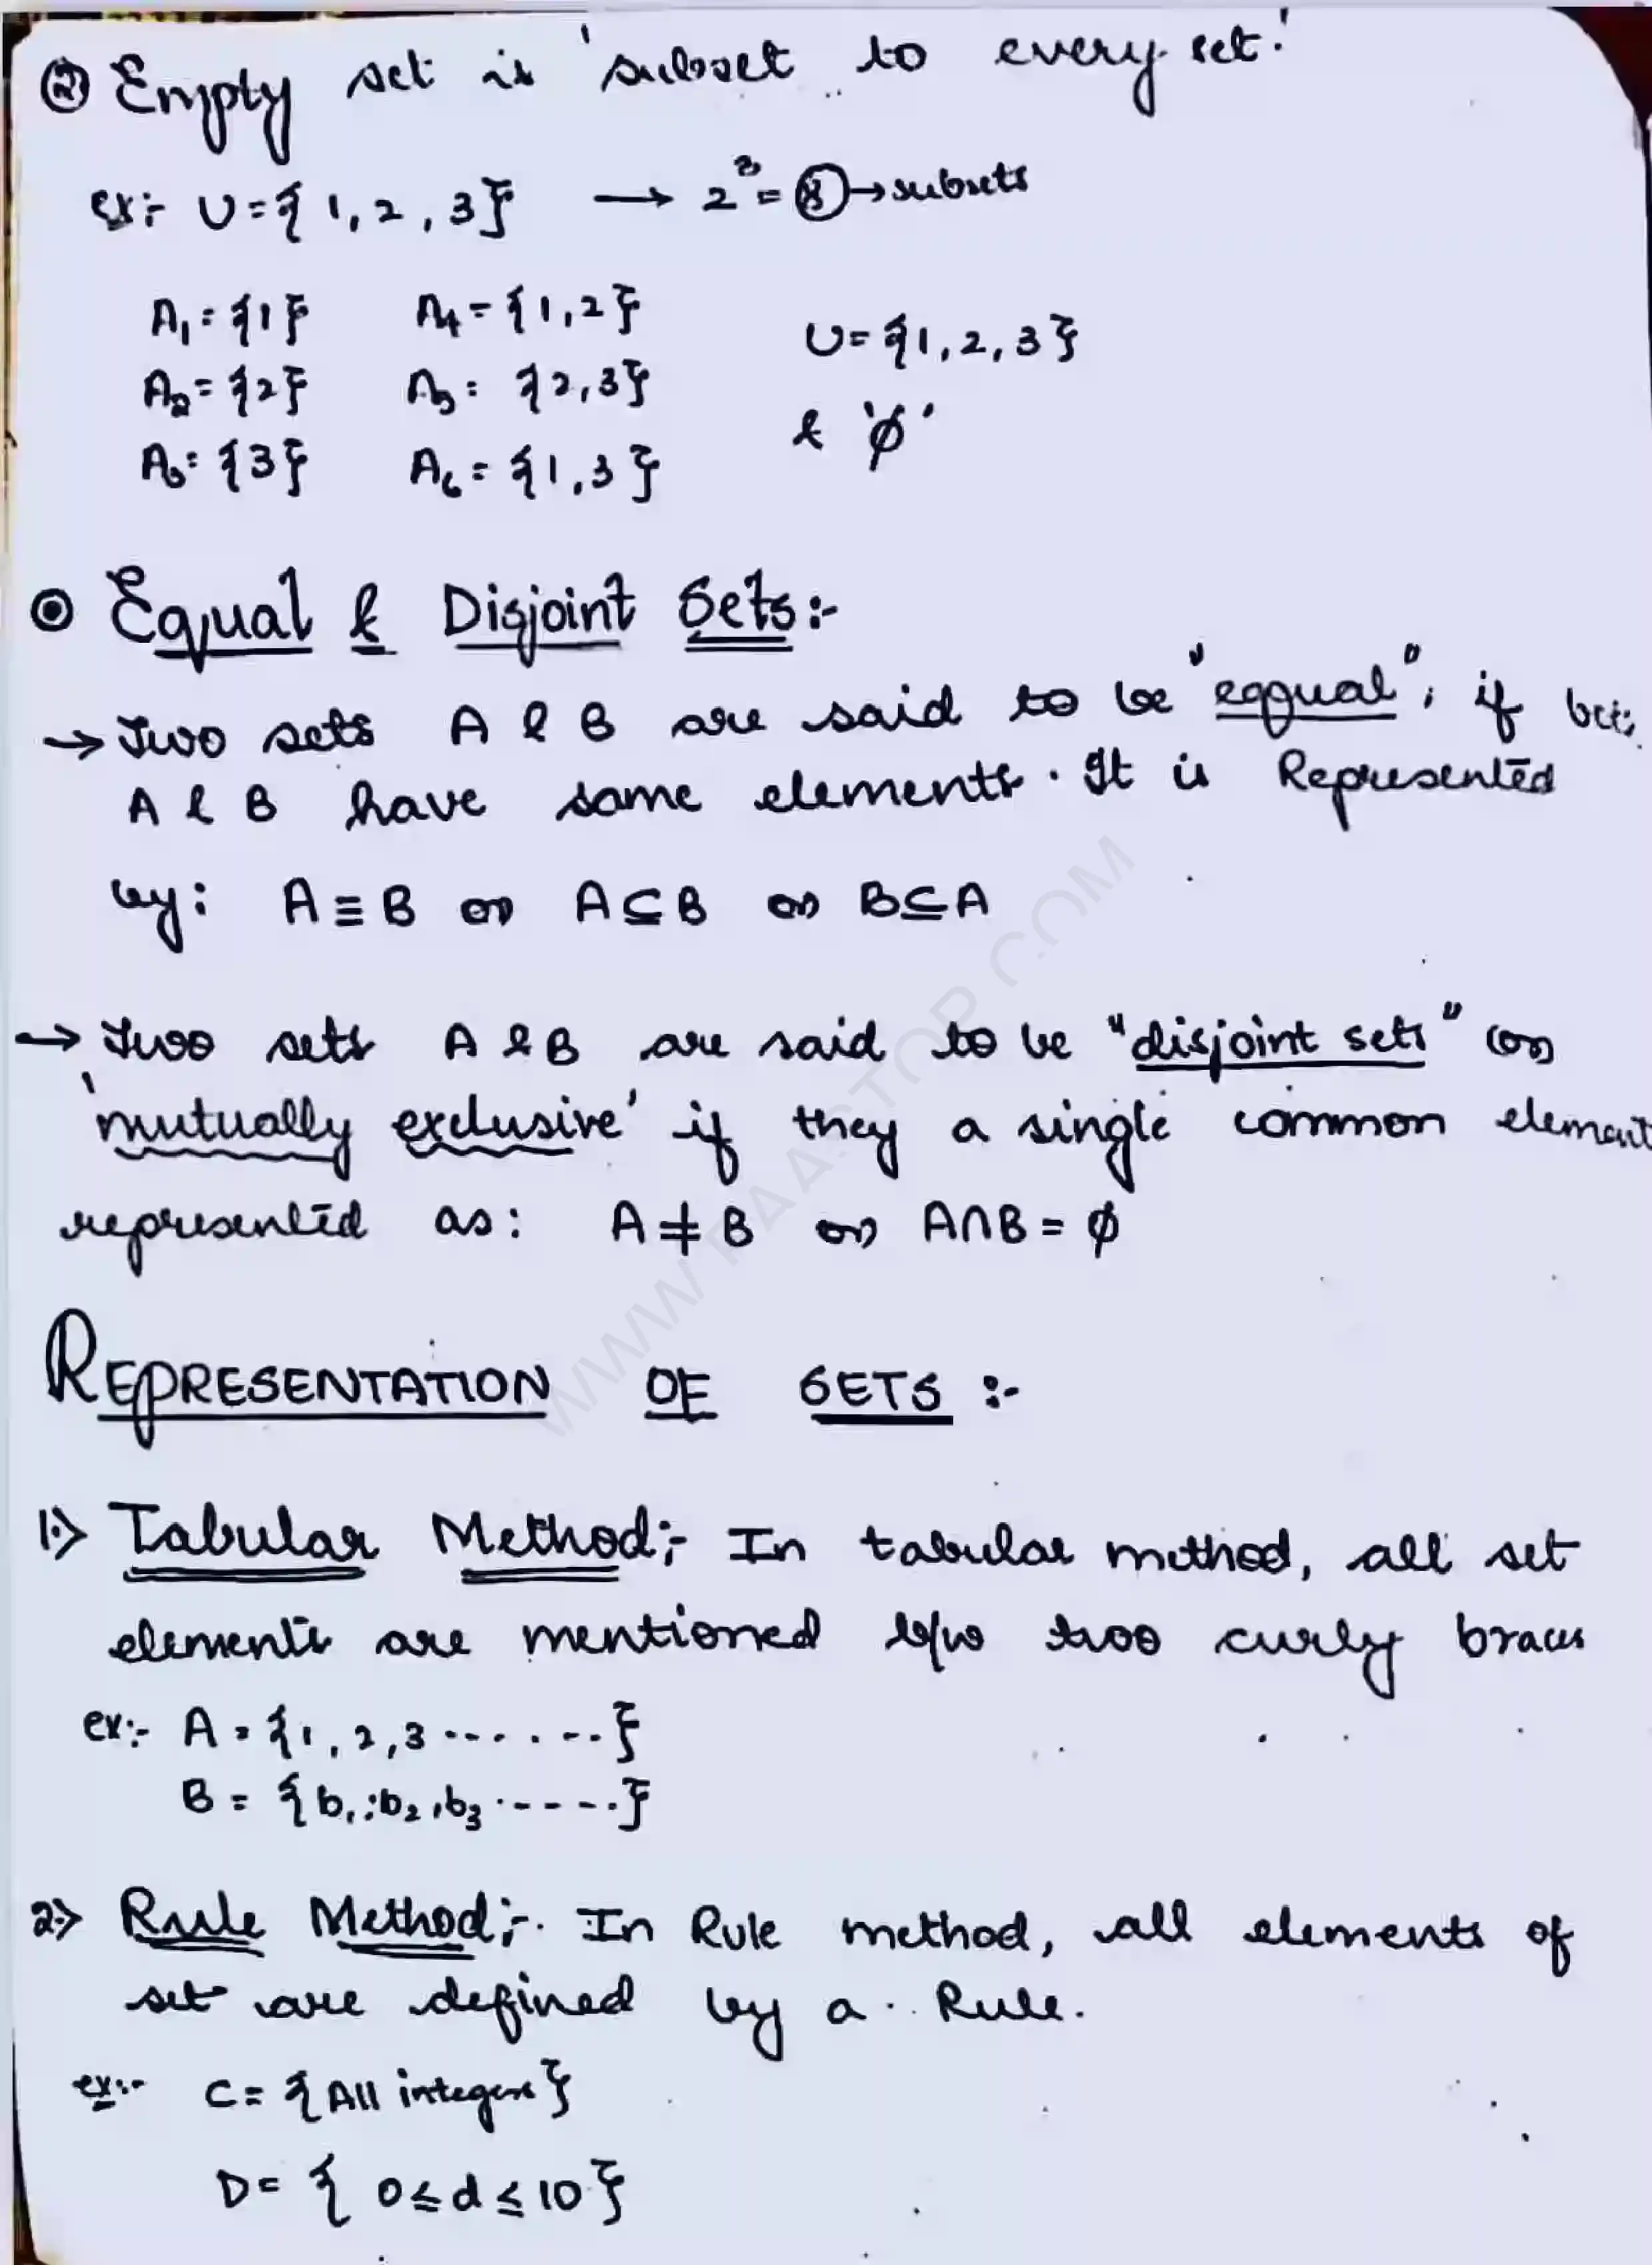 ② Empty set is 'subset to every set.'
ex:- U={1, 2, 3} → 2³=⑧→subsets
A₁={1} A₄={1,2} U={1,2,3}
A₂={2} A₅= {2,3} & 'ϕ'
A₃={3} A₆={1,3}
⊙ Equal & Disjoint Sets:-
→ Two sets A & B are said to be "eqqual", if
A & B have same elements. It is Represented
by: A≡B or A⊆B or B⊆A
→ Two sets A & B are said to be "disjoint sets" (or)
'mutually exclusive' if they a single common element
represented as: A≠B or A∩B = ϕ
REPRESENTATION OF SETS :-
1.> Tabular Method;- In tabular method, all set
elements are mentioned b/w two curly braces
ex:- A={1, 2, 3 -------}
B = {b₁, b₂, b₃ ------}
2.> Rule Method;- In Rule method, all elements of
set are defined by a Rule.
ex:- C= {All integers}
D= { 0≤d≤10}